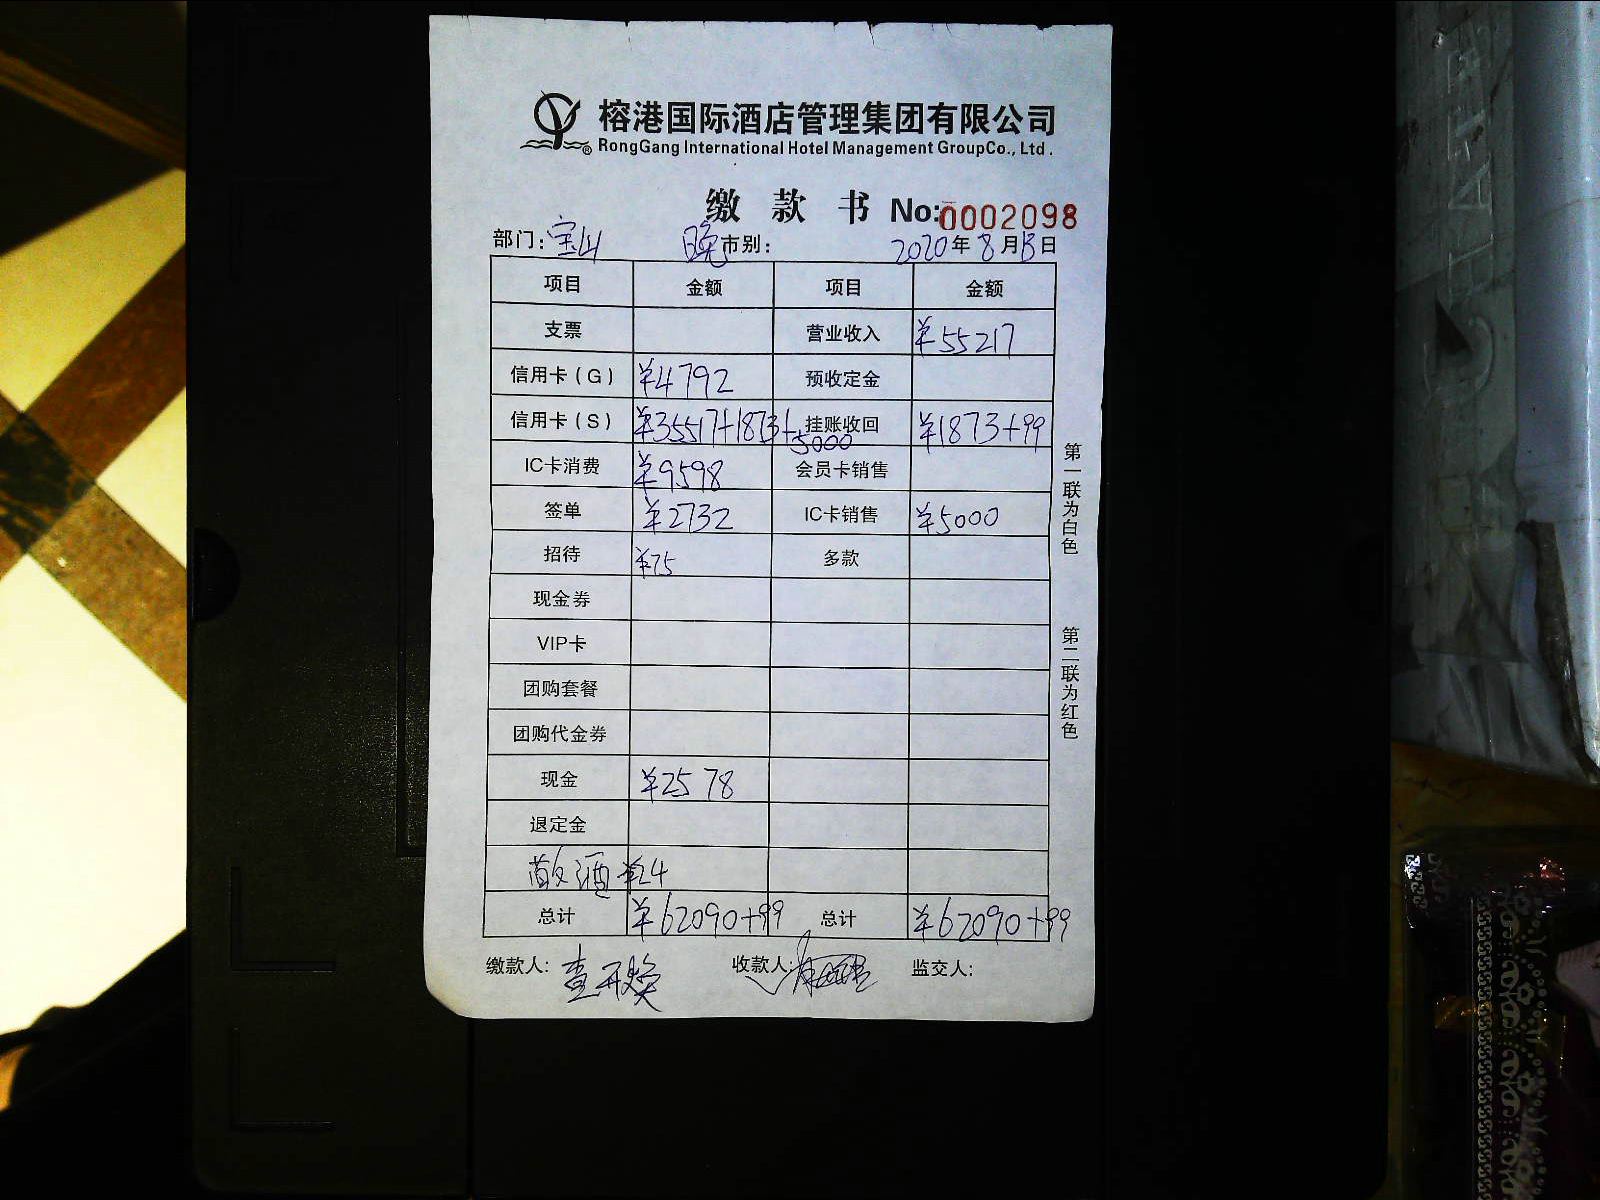 榕港国际酒店管理集团有限公司
RongGang International Hotel Management GroupCo., Ltd .
缴款书 No:0002098
部门: 宝山 晚市别: 2020年8月13日
项目 金额 项目 金额
支票 营业收入 ¥55217
信用卡(G) ¥4792 预收定金
信用卡(S) ¥35517+1873+5000 挂账收回 ¥1873+99
IC卡消费 ¥9598 会员卡销售
签单 ¥2732 IC卡销售 ¥5000
招待 ¥75 多款
现金券
VIP卡
团购套餐
团购代金券
现金 ¥2578
退定金
散酒 ¥24
总计 ¥62090+99 总计 ¥62090+99
缴款人: 收款人: 监交人:
第一联为白色
第二联为红色